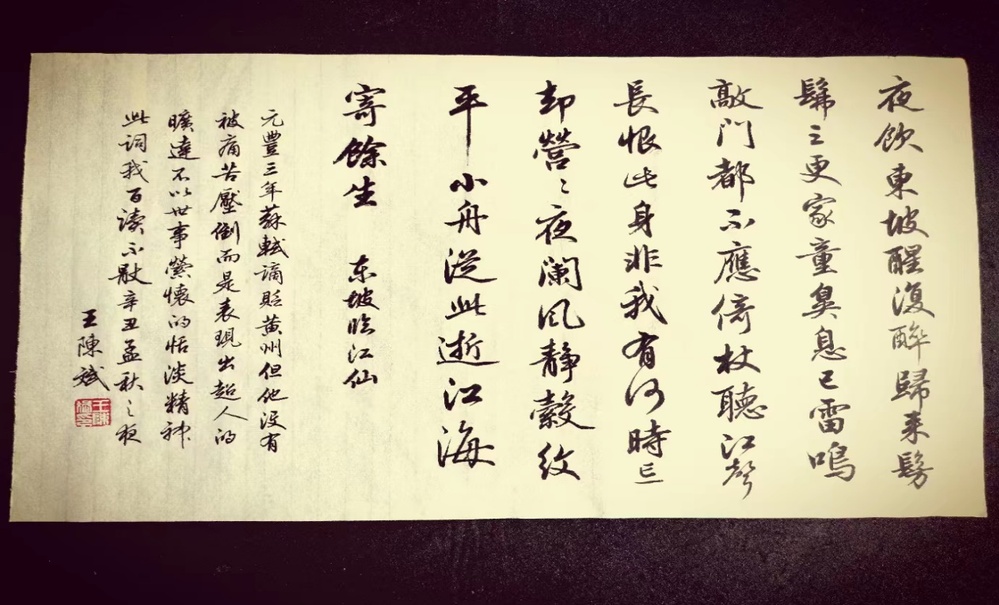 夜饮東坡醒復醉歸来髣
髴三更家童鼻息已雷鳴
敲門都不應倚杖聽江聲
長恨此身非我有何時忘
却營〻夜闌风静縠纹
平小舟從此逝江海
寄餘生 东坡臨江仙
元豐三年蘇軾謫贬黄州但他没有
被痛苦壓倒而是表現出超人的
曠達不以世事縈懷的恬淡精神
此词我百读不厭辛丑孟秋之夜
王陳斌